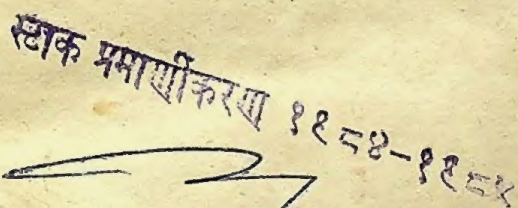 स्टाक प्रमाणीकरण १९८४-१९८५